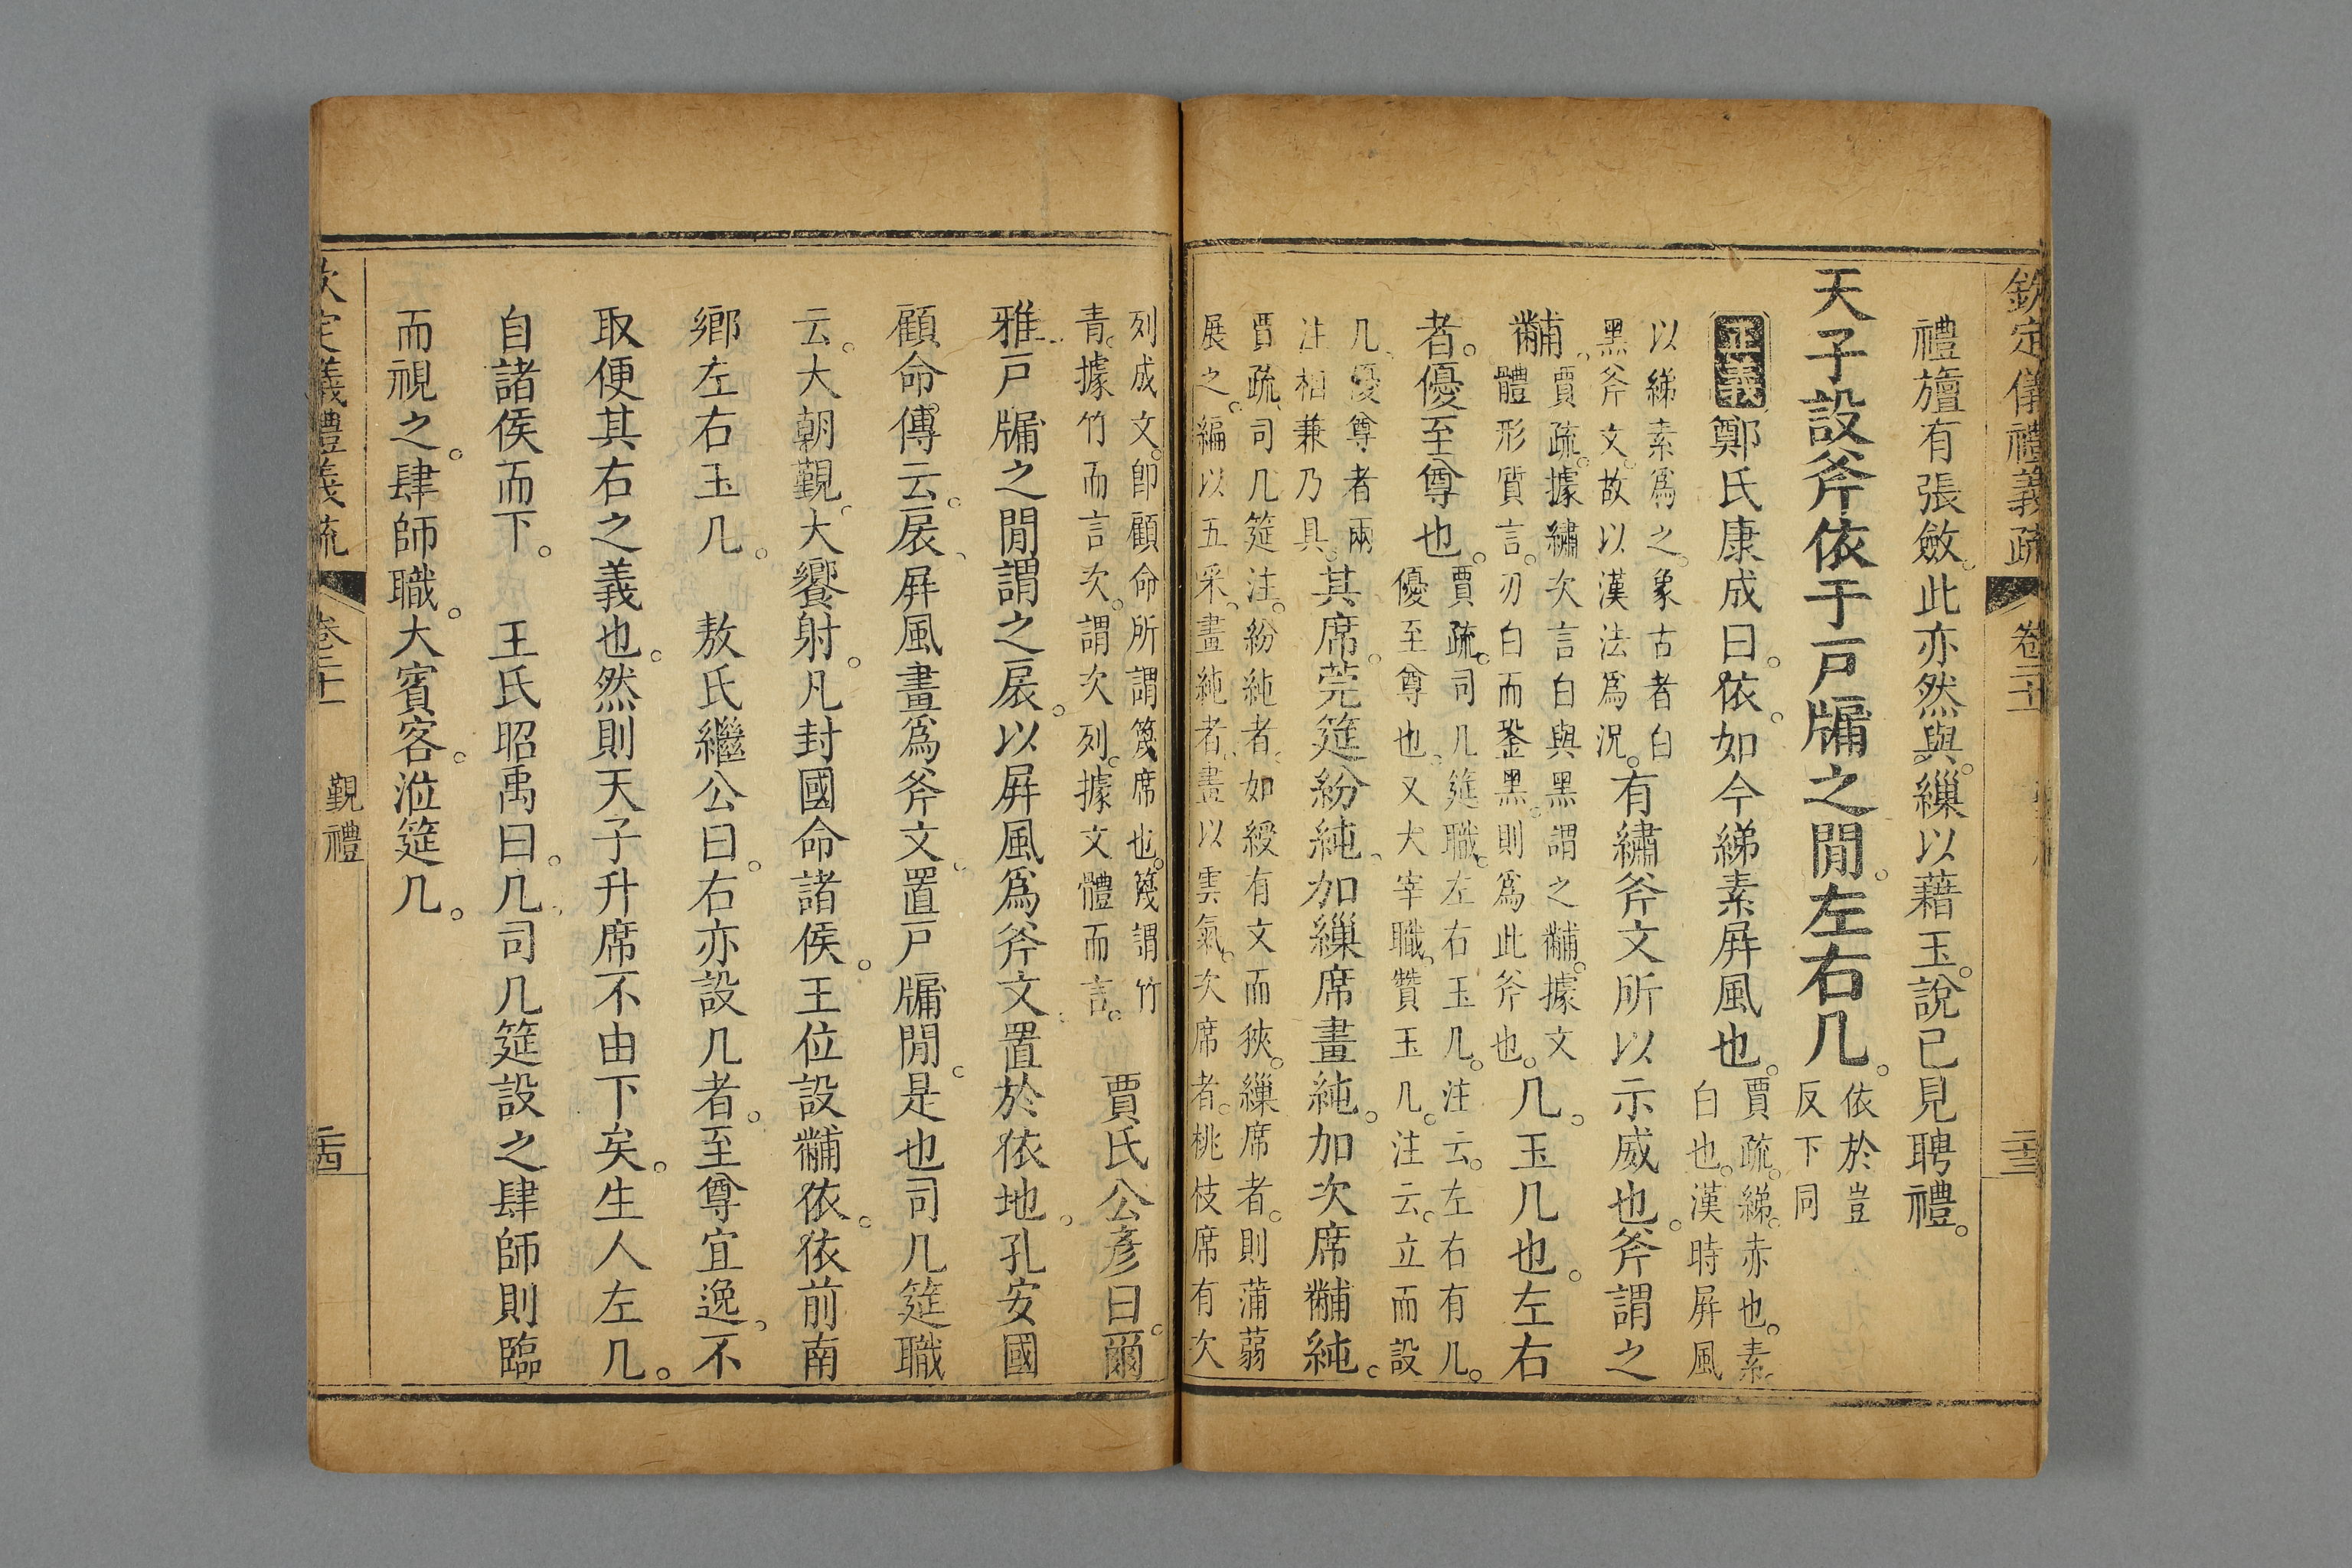 欽定儀禮義疏 卷二十一 二十三
禮旜有張斂。此亦然與。繅以藉玉。說已見聘禮。
天子設斧依于戶牖之閒。左右几。依於豈
反下同
正義鄭氏康成曰。依。如今綈素屏風也。賈疏。綈。赤也。素、
白也。漢時屏風
以綈素爲之。象古者白
黑斧文。故以漢法爲況。有繡斧文所以示威也。斧謂之
黼、賈疏。據繡次言白與黑謂之黼。據文
體形質言。刃白而銎黑。則爲此斧也。几。玉几也。左右
者。優至尊也。賈疏。司几筵職。左右玉几。注云。左右有几。
優至尊也、又大宰職、贊玉几。注云。立而設
几、優尊者兩
注相兼乃具。其席。莞筵紛純、加繅席畫純。加次席黼純。
賈疏、司几筵注。紛純者、如綬有文而狹。繅席者。則蒲蒻
展之。編以五采、畫純者、畫以雲氣。次席者。桃枝席有次
列成文。卽顧命所謂篾席也。篾謂竹
青。據竹而言次。謂次列。據文體而言。賈氏公彥曰。爾
雅戶牖之閒謂之扆。以屛風爲斧文置於依地。孔安國
顧命傳云。扆、屛風畫爲斧文、置戶牖閒。是也司几筵職
云。大朝覲、大饗射。凡封國命諸侯。王位設黼依。依前南
鄉左右玉几。敖氏繼公曰。右亦設几者。至尊宜逸、不
取便其右之義也。然則天子升席不由下矣。生人左几。
自諸侯而下。王氏昭禹曰。几、司几筵設之肆師則臨
而視之。肆師職。大賓客。涖筵几。
欽定儀禮義疏 卷二十一 覲禮 二十四